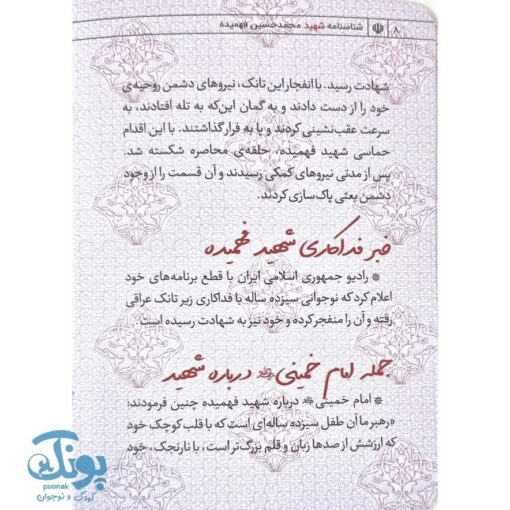 ۸ شناسنامه شهید محمدحسین فهمیده
شهادت رسید. با انفجار این تانک، نیروهای دشمن روحیه‌ی
خود را از دست دادند و به گمان این‌که به تله افتادند، به
سرعت عقب‌نشینی کردند و پا به فرار گذاشتند. با این اقدام
حماسی شهید فهمیده، حلقه‌ی محاصره شکسته شد.
پس از مدتی نیروهای کمکی رسیدند و آن قسمت را از وجود
دشمن بعثی پاک‌سازی کردند.
خبر فداکاری شهید فهمیده
* رادیو جمهوری اسلامی ایران با قطع برنامه‌های خود
اعلام کرد که نوجوانی سیزده ساله با فداکاری زیر تانک عراقی
رفته و آن را منفجر کرده و خود نیز به شهادت رسیده است.
جمله امام خمینی درباره شهید
* امام خمینی درباره شهید فهمیده چنین فرمودند:
«رهبر ما آن طفل سیزده ساله‌ای است که با قلب کوچک خود
که ارزشش از صدها زبان و قلم بزرگ‌تر است، با نارنجک، خود
پونک
puonak
کودک و نوجوان